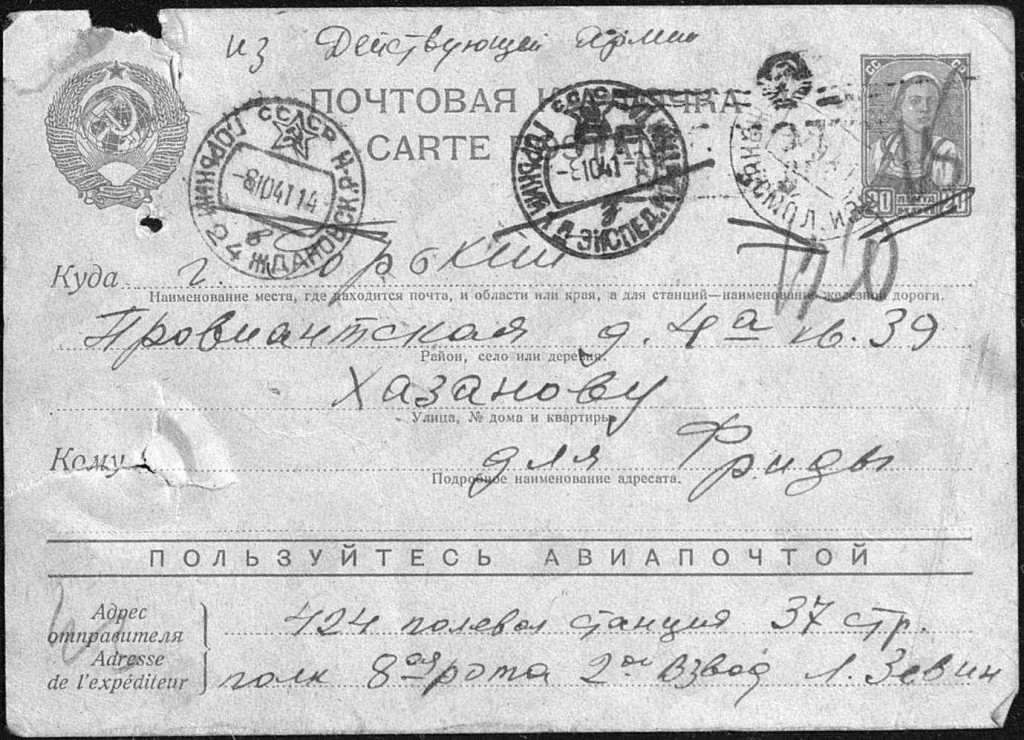 из Действующей Армии
ПОЧТОВАЯ КАРТОЧКА
CARTE POSTALE
СССР
ГОРЬКИЙ
-81041 14-
24 ЖДАНОВСК. Р-Н
СССР
ГОРЬКИЙ
-81041-
ЭКСПЕД.
СМОЛ
СССР
20
Куда г. Горький
Наименование места, где находится почта, и области или края, а для станций—наименование железной дороги.
Провиантская д. 4а кв. 39
Район, село или деревня.
Хазанову
Улица, № дома и квартиры.
Кому для Фриды
Подробное наименование адресата.
ПОЛЬЗУЙТЕСЬ АВИАПОЧТОЙ
Адрес отправителя
Adresse de l'expéditeur
424 полевая станция 37 стр.
полк 8ая рота 2ой взвод Л. Зевин